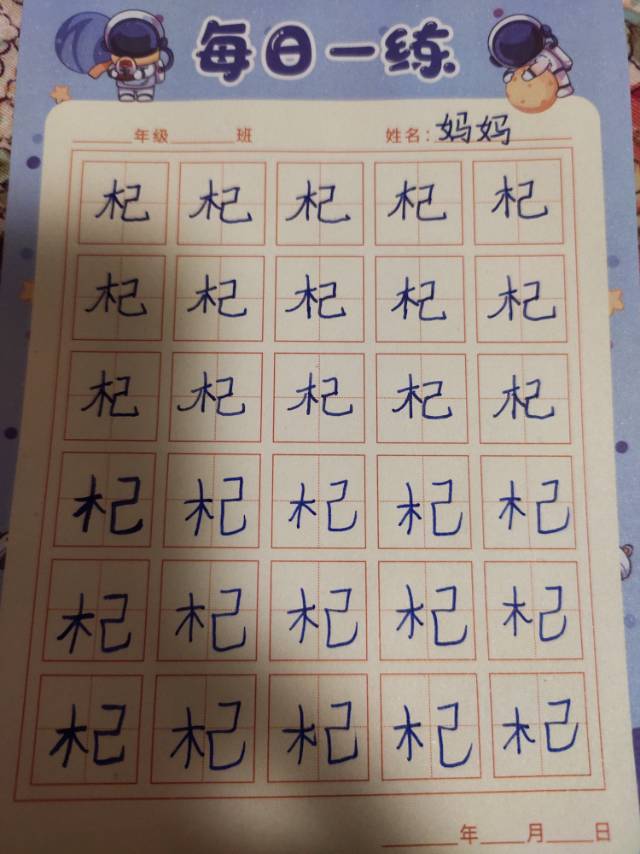 每日一练
年级 班 姓名:妈妈
杞 杞 杞 杞 杞
杞 杞 杞 杞 杞
杞 杞 杞 杞 杞
杞 杞 杞 杞 杞
杞 杞 杞 杞 杞
杞 杞 杞 杞 杞
年 月 日